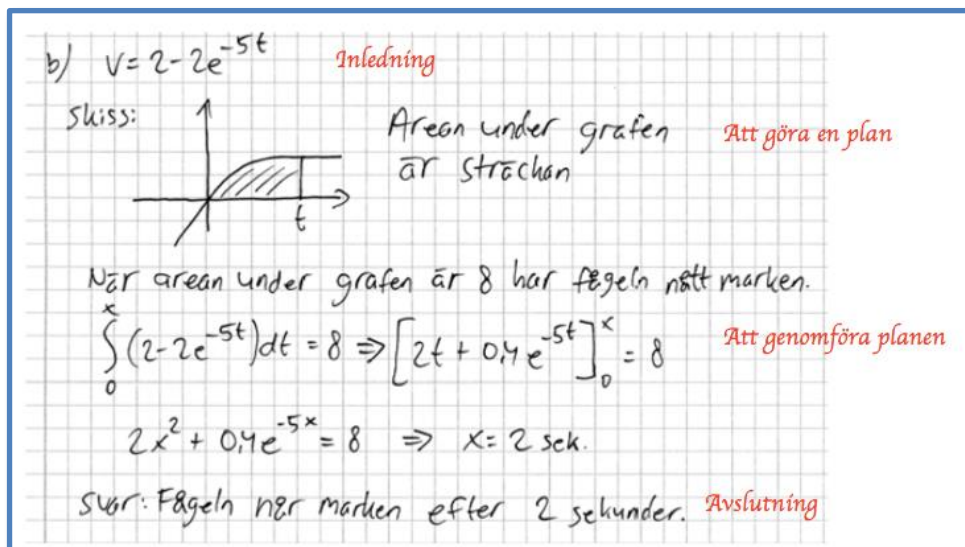 b) v = 2 - 2e^{-5t} Inledning
Skiss:
Arean under grafen Att göra en plan
är sträckan
t
När arean under grafen är 8 har fågeln nått marken.
∫_0^x (2-2e^{-5t})dt = 8 ⇒ [2t + 0,4e^{-5t}]_0^x = 8 Att genomföra planen
2x^2 + 0,4e^{-5x} = 8 ⇒ x = 2 sek.
Svar: Fågeln når marken efter 2 sekunder. Avslutning